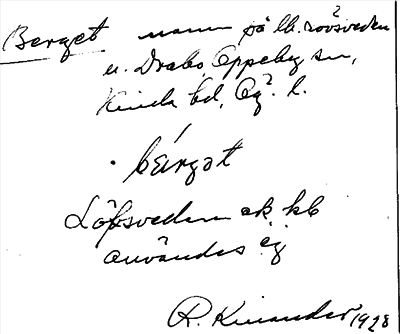 Berget namn på lh. Lövsveden
u. Drabo, Oppeby sn,
Kinda hd, Ög. l.
bärgat
Löfsveden ek. kb
användes ej
R. Kinander 1928